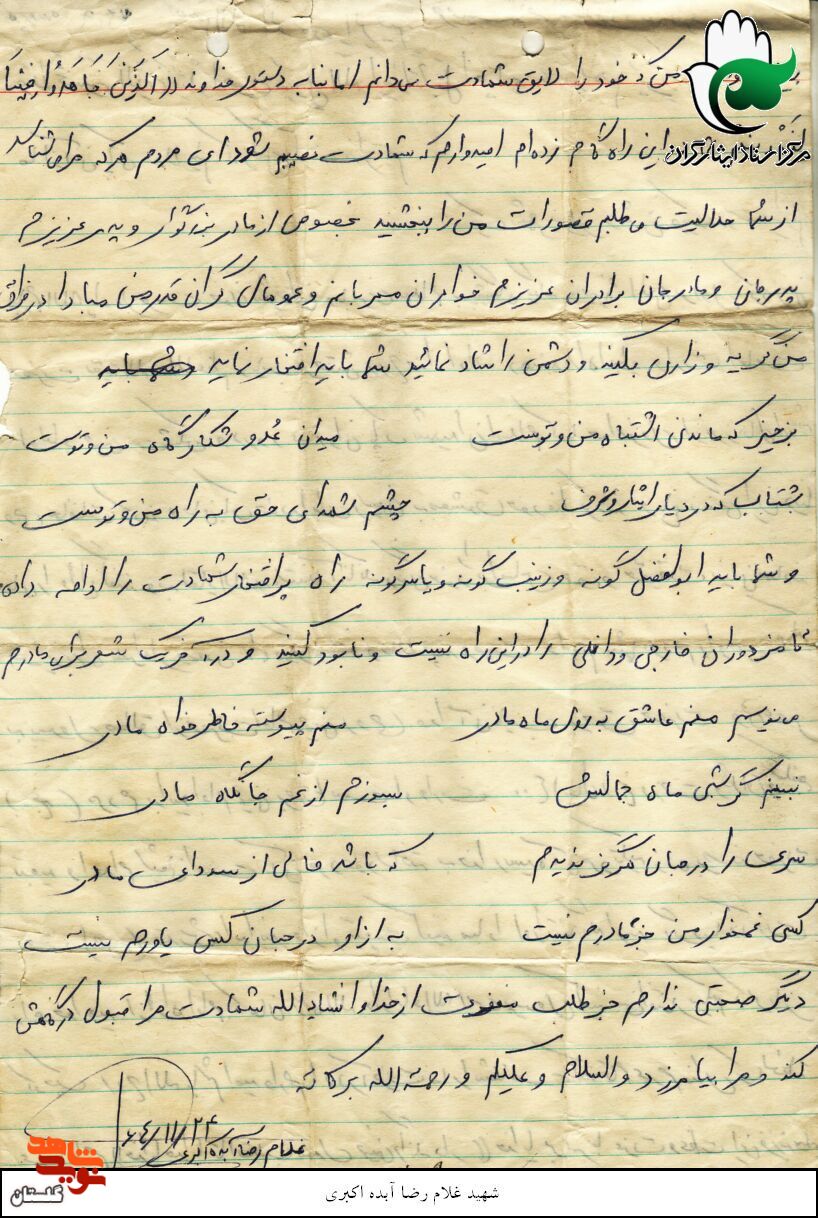 من که خود را لایق شهادت نمی‌دانم اما بنا به دستور خداوند ((الذین جاهدوا فینا
این راه گام زده‌ام امیدوارم که شهادت نصیبم شود ای مردم هرکه مرا می‌شناسد
از شما حلالیت می‌طلبم قصورات من را ببخشید بخصوص از مادر بزرگوار و پدر عزیزم
پدرجان و مادرجان برادران عزیزم خواهران مهربانم و عموهای گران قدر من مبادا در فراق
من گریه و زاری بکنید و دشمن را شاد نمائید شما باید افتخار نماید
برخیز که ماندن اشتباه من و توست میدان عدو شکارگاه من و توست
بشتاب که در دیار ایثار و شرف چشم شهدای حق به راه من و توست
و شما باید ابوالفضل گونه و زینب گونه و یاسرگونه راه پر افتخار شهادت را ادامه داده
تا مزدوران خارجی و داخلی را در این راه نیست و نابود کنید و در آخر یک شعر برای مادرم
می‌نویسم منم عاشق به روی ماه مادر منم پیوسته خاطرخواه مادر
نبینم گر شبی ماه جمالش بسوزم از غم جانگاه مادر
سری را در جهان هرگز ندیدم که باشد خالی از سودای مادر
کسی غمخوار من جز مادرم نیست به از او در جهان کس یاورم نیست
دیگر صحبتی ندارم جز طلب مغفرت از خدا و انشاءالله شهادت مرا قبول درگاهش
کند و مرا بیامرزد والسلام و علیکم و رحمة الله برکاته
۶۴/۱۱/۲۴
غلام رضا آبده اکبری
مرکز اسناد ایثارگران
نوید شاهد
گلستان
شهید غلام رضا آبده اکبری